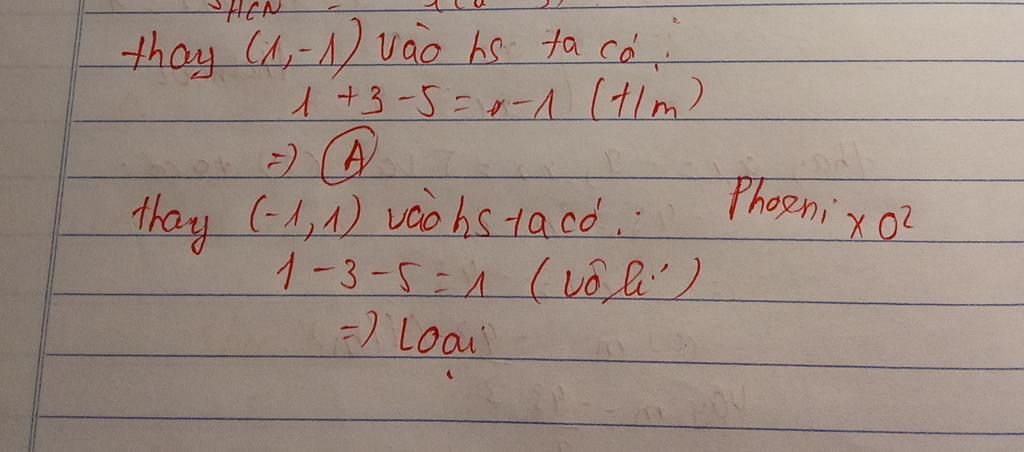 SHCN
thay (1,-1) vào hs ta có:
1 + 3 - 5 = -1 (t/m)
=> A
thay (-1,1) vào hs ta có:
Phoeni x O²
1 - 3 - 5 = 1 (vô lí)
=> Loại